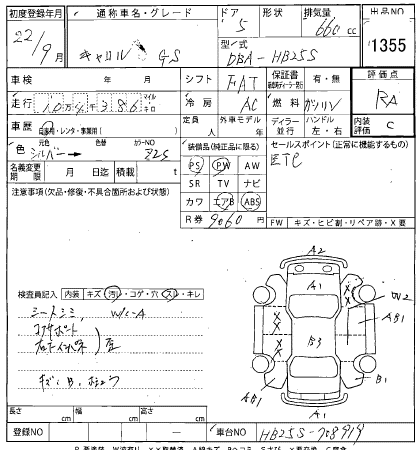 初度登録年月 通称車名・グレード ドア 形状 排気量 出品NO
22/9月 キャロル GS 5 660cc 1355
型式 DBA-HB25S
車検 年 月 シフト FAT 保証書 有・無 評価点
走行 10万4千386 マイル キロ 冷房 AC 燃料 ガソリン RA
車歴 自家用・レンタ・事業用( ) 定員 人 外車モデル 年 ディーラー 並行 ハンドル 左・右 内装 C
色 元色 シルバー→ 色替 カラーNO Z2S 装備品(純正品に限る) セールスポイント(正常に機能するもの)
名義変更期限 月 日迄 積載 t PS PW AW ETC
注意事項(欠品・修復・不具合箇所および状態) SR TV ナビ
カワ エアB ABS
R券 9060円 FW キズ・ヒビ割・リペア跡・X要
検査員記入 内装 キズ・汚レ・コゲ・穴・スレ・キレ
シートシミ W/C-A
コアサポート
キズ、B、
A2
A1
W2
AB1
B3
B1
AB1
A1
長さ cm 幅 cm 高さ cm
登録NO 車台NO HB25S-708919